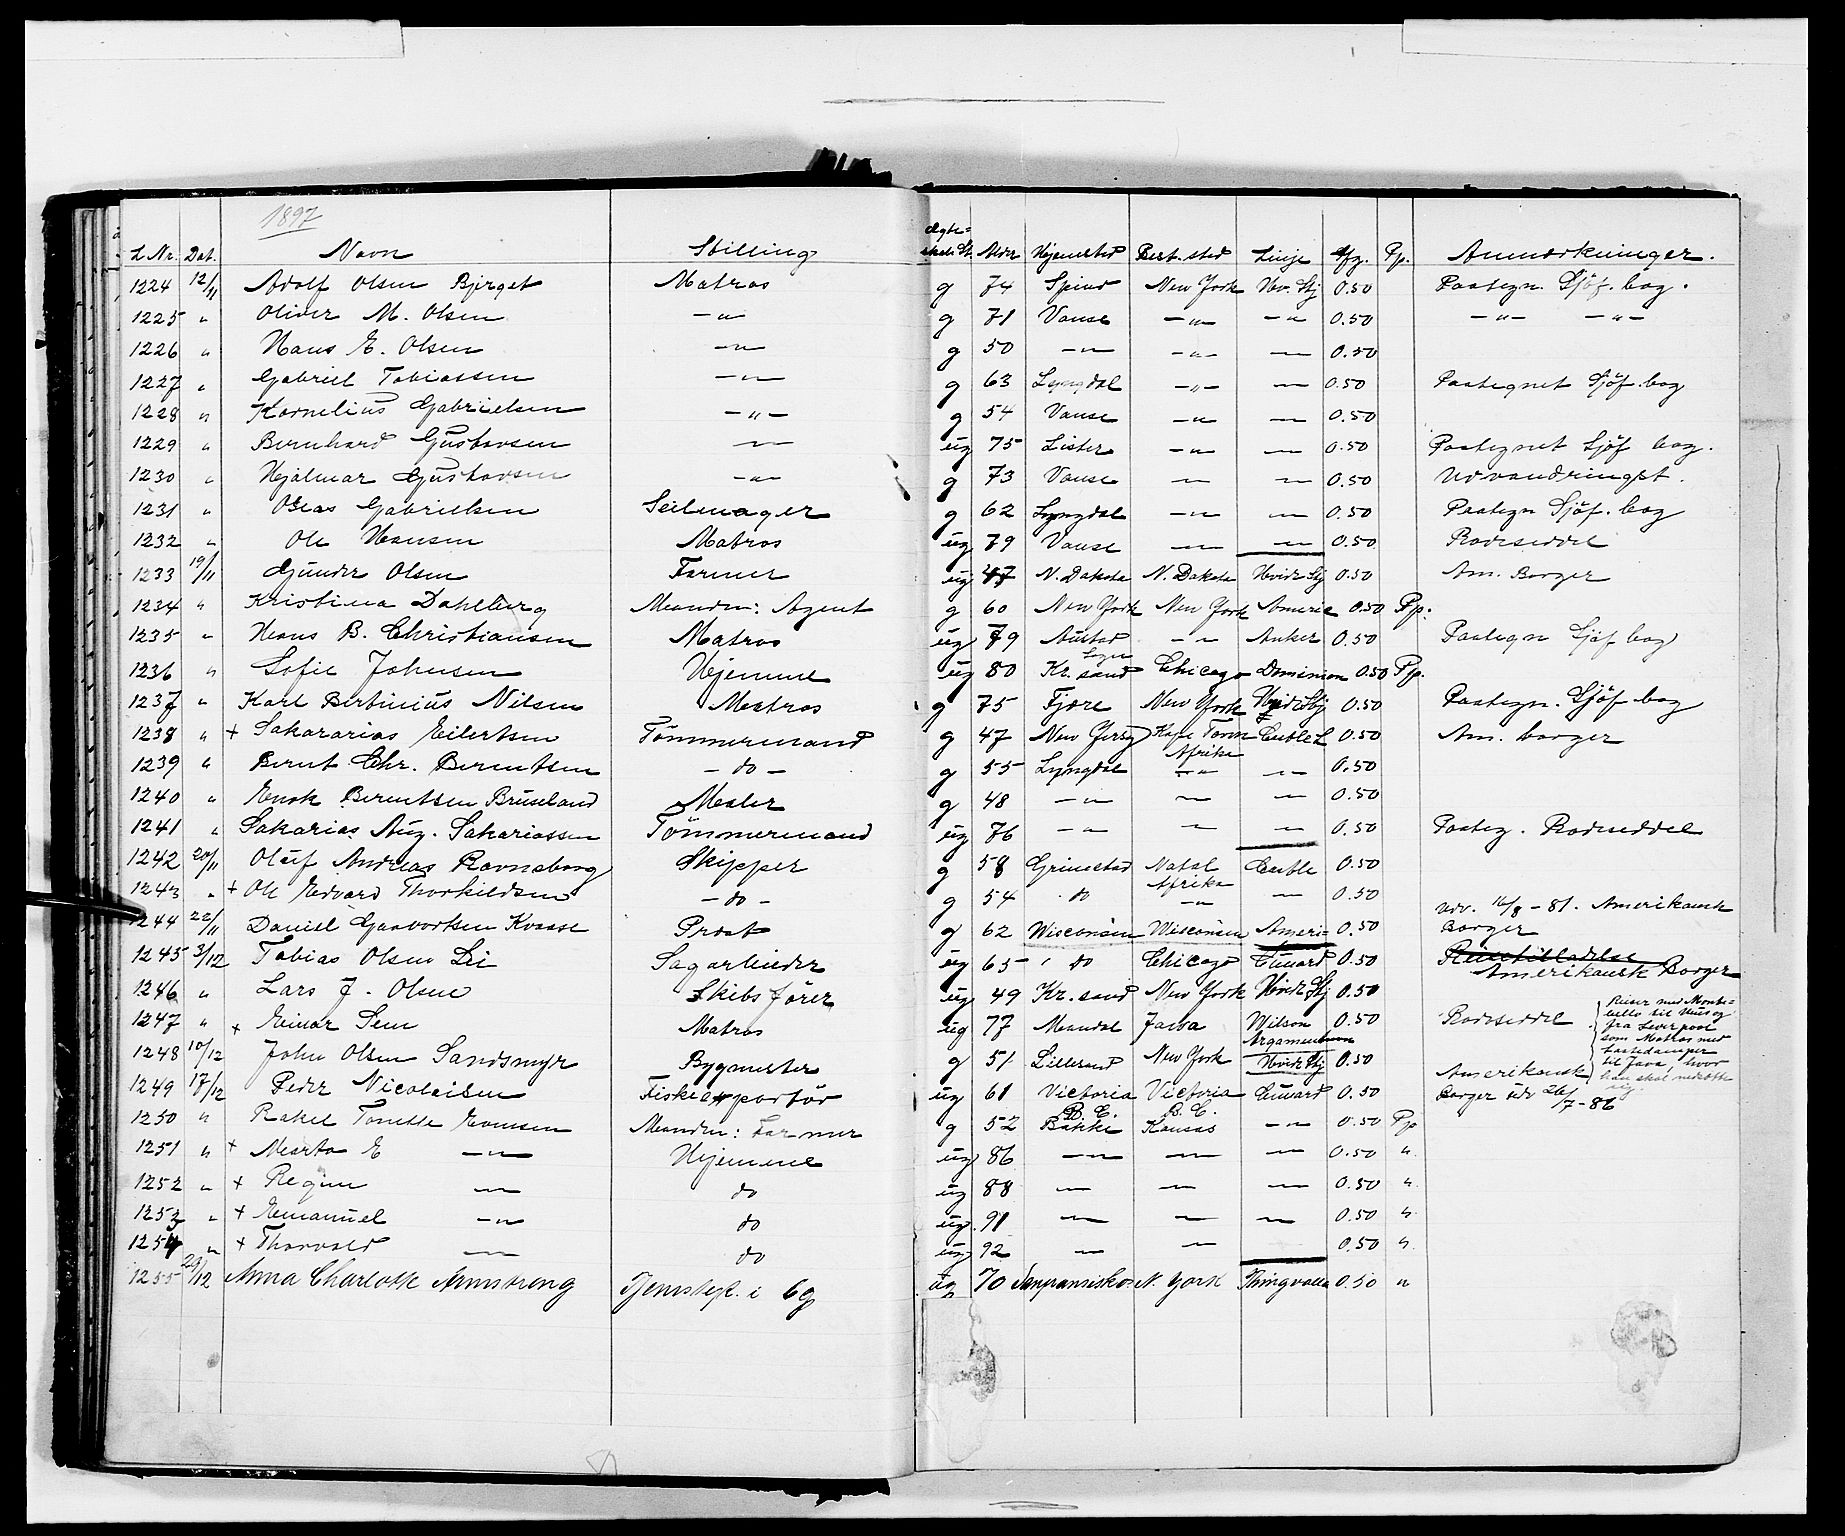 1897
L Nr. Dat. Navn Stilling Ægteskab St. Alder Hjemsted Best. sted Linje Afg. Pp. Anmærkninger.
1224 12/11 Adolf Olsen Bjerget Matros g 74 Spind New York Hv. Stj 0.50 Paategn. Sjöf. bog.
1225 " Oliver M. Olsen —"— g 71 Vanse —"— —"— 0.50 —"— —"—
1226 " Hans E. Olsen —"— g 50 —"— —"— —"— 0.50
1227 " Gabriel Tobiassen —"— g 63 Lyngdal —"— —"— 0.50 Paategnet Sjöf. bog
1228 " Kornelius Gabrielsen —"— g 54 Vanse —"— —"— 0.50
1229 " Bernhard Gustavsen —"— ug 75 Lister —"— —"— 0.50 Paategnet Sjöf bog.
1230 " Hjalmar Gustavsen —"— g 73 Vanse —"— —"— 0.50 Udvandringst.
1231 " Gabrielsen Seilmager g 62 Lyngdal —"— —"— 0.50 Paategn Sjöf. bog
1232 " Ole Hansen Matros ug 79 Vanse —"— —"— 0.50 Rodeseddel
1233 19/11 Gunder Olsen Farmer ug 47 N. Dakota N. Dakota Hvide Stj 0.50 Am. Borger
1234 " Kristina Dahlberg Manden: Agent g 60 New York New York Americ 0.50 Pp.
1235 " Hans B. Christiansen Matros ug 79 Austad —"— Anker 0.50 Paategn Sjöf bog
1236 " Sofie Johnsen Hjemme ug 80 Kr. sand Chicago Dominion 0.50 Pp.
1237 " Karl Bertinius Nilsen Matros g 75 Fjære New York Hvide Stj 0.50 Paategn. Sjöf bog
1238 " + Sakararias Eilertsen Tømmermand g 47 New Jersey Kape Town Afrika Castle L 0.50 Am. borger
1239 " Bernt Chr. Berentsen — do — g 55 Lyngdal —"— —"— 0.50
1240 " Enok Berentsen Bruseland Maler g 48 —"— —"— —"— 0.50
1241 " Sakarias Aug. Sakariassen Tømmermand ug 76 —"— —"— —"— 0.50 Paateg. Rodeseddel
1242 20/11 Oluf Andreas Ravneberg Skipper g 58 Grimstad Natal Afrika Castle 0.50
1243 " + Ole Edvard Thorkildsen — do — g 54 do —"— —"— 0.50
1244 22/11 Daniel Gasvortsen Kvasse Prost g 62 Wisconsin Wisconsin Ameri= 0.50 Udv. 16/8 - 81. Amerikansk Borger
1245 3/12 Tobias Olsen Lei Sagarbeider ug 65 " do Chicago Cunard 0.50 Amerikansk Borger
1246 " Lars J. Olsen Skibsfører ug 49 Kr. sand New York Hvide Stj 0.50
1247 " + Einar Sem Matros ug 77 Mandal Java Wilson 0.50 Rodeseddel
Reiser med Monte=
bello til Hull og
fra Liverpool
som Matros med
til Java, hvor
1248 10/12 John Olsen Sandsmyr Bygmester g 51 Lillesand New York Hvide Stj 0.50
1249 17/12 Peder Nicolaisen Fiskexportør ug 61 Victoria B. C. Victoria B. C. Cunard 0.50 Amerikansk Borger udv 26/7 - 86
1250 " Rakel Tonette Evensen Manden: Farmer g 52 Bakke Kansas —"— 0.50 Pp
1251 " + Marta E —"— Hjemme ug 86 —"— —"— —"— 0.50 "
1252 " + Regine —"— do ug 88 —"— —"— —"— 0.50 "
1253 " + Emanuel —"— do ug 91 —"— —"— —"— 0.50 "
1254 " + Thorvald —"— do ug 92 —"— —"— 0.50 "
1255 29/12 Anna Charlotte Armstrong Tjenestepi. i 6g ug 70 Sanfransisko N. York Thingvalla 0.50 "